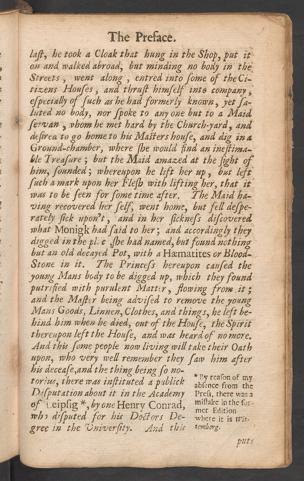 The Preface.
last, he took a Cloak that hung in the Shop, put it
on and walked abroad, but minding no body in the
Streets, went along, entred into some of the Ci-
tizens Houses, and thrust himself into company,
especially of such as he had formerly known, yet sa-
luted no body, nor spoke to any one but to a Maid
servan, whom he met hard by the Church-yard, and
desired to go home to his Masters house, and dig in a
Ground-chamber, where she would find an inestima-
ble Treasure; but the Maid amazed at the sight of
him, sounded; whereupon he lift her up, but left
such a mark upon her Flesh with lifting her, that it
was to be seen for some time after. The Maid ha-
ving recovered her self, went home, but fell despe-
rately sick upon't, and in her sickness discovered
what Monigk had said to her; and accordingly they
digged in the pl.c she had named, but found nothing
but an old decayed Pot, with a Hæmatites or Blood-
Stone in it. The Princess hereupon caused the
young Mans body to be digged up, which they found
putrified with purulent Matter, flowing from it;
and the Master being advised to remove the young
Mans Goods, Linnen, Clothes, and things, he left be-
hind him when he died, out of the House, the Spirit
thereupon left the House, and was heard of no more.
And this some people now living will take their Oath
upon, who very well remember they saw him after
his decease, and the thing being so no-
torius, there was instituted a publick
Disputation about it in the Academy
of Leipsig *, by one Henry Conrad,
who disputed for his Doctors De-
gree in the University. And this
* By reason of my
absence from the
Press, there was a
mistake in the for-
mer Edition
where it is Wit-
temberg.
puts